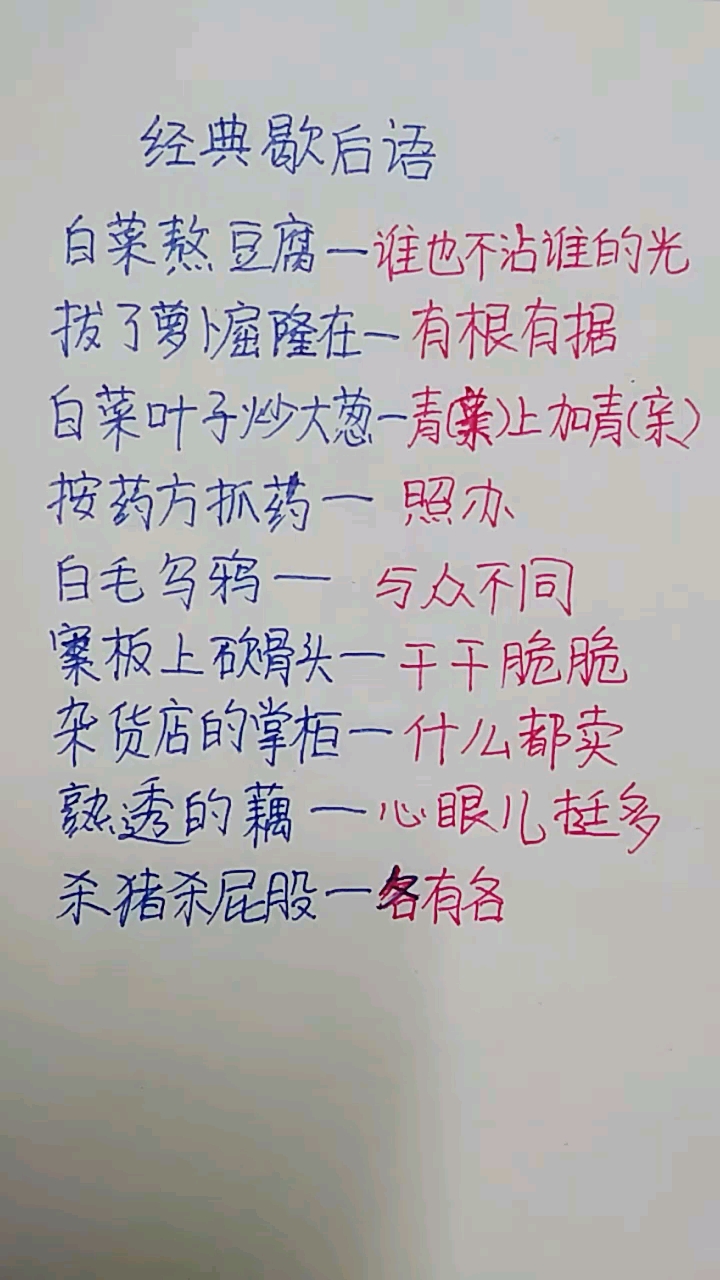 经典歇后语
白菜熬豆腐一谁也不沾谁的光
拔了萝卜窟隆在一有根有据
白菜叶子炒大葱一青(亲)上加青(亲)
按药方抓药一 照办
白毛乌鸦一 与众不同
案板上砍骨头一干干脆脆
杂货店的掌柜一什么都卖
熟透的藕一心眼儿挺多
杀猪杀屁股一各有各